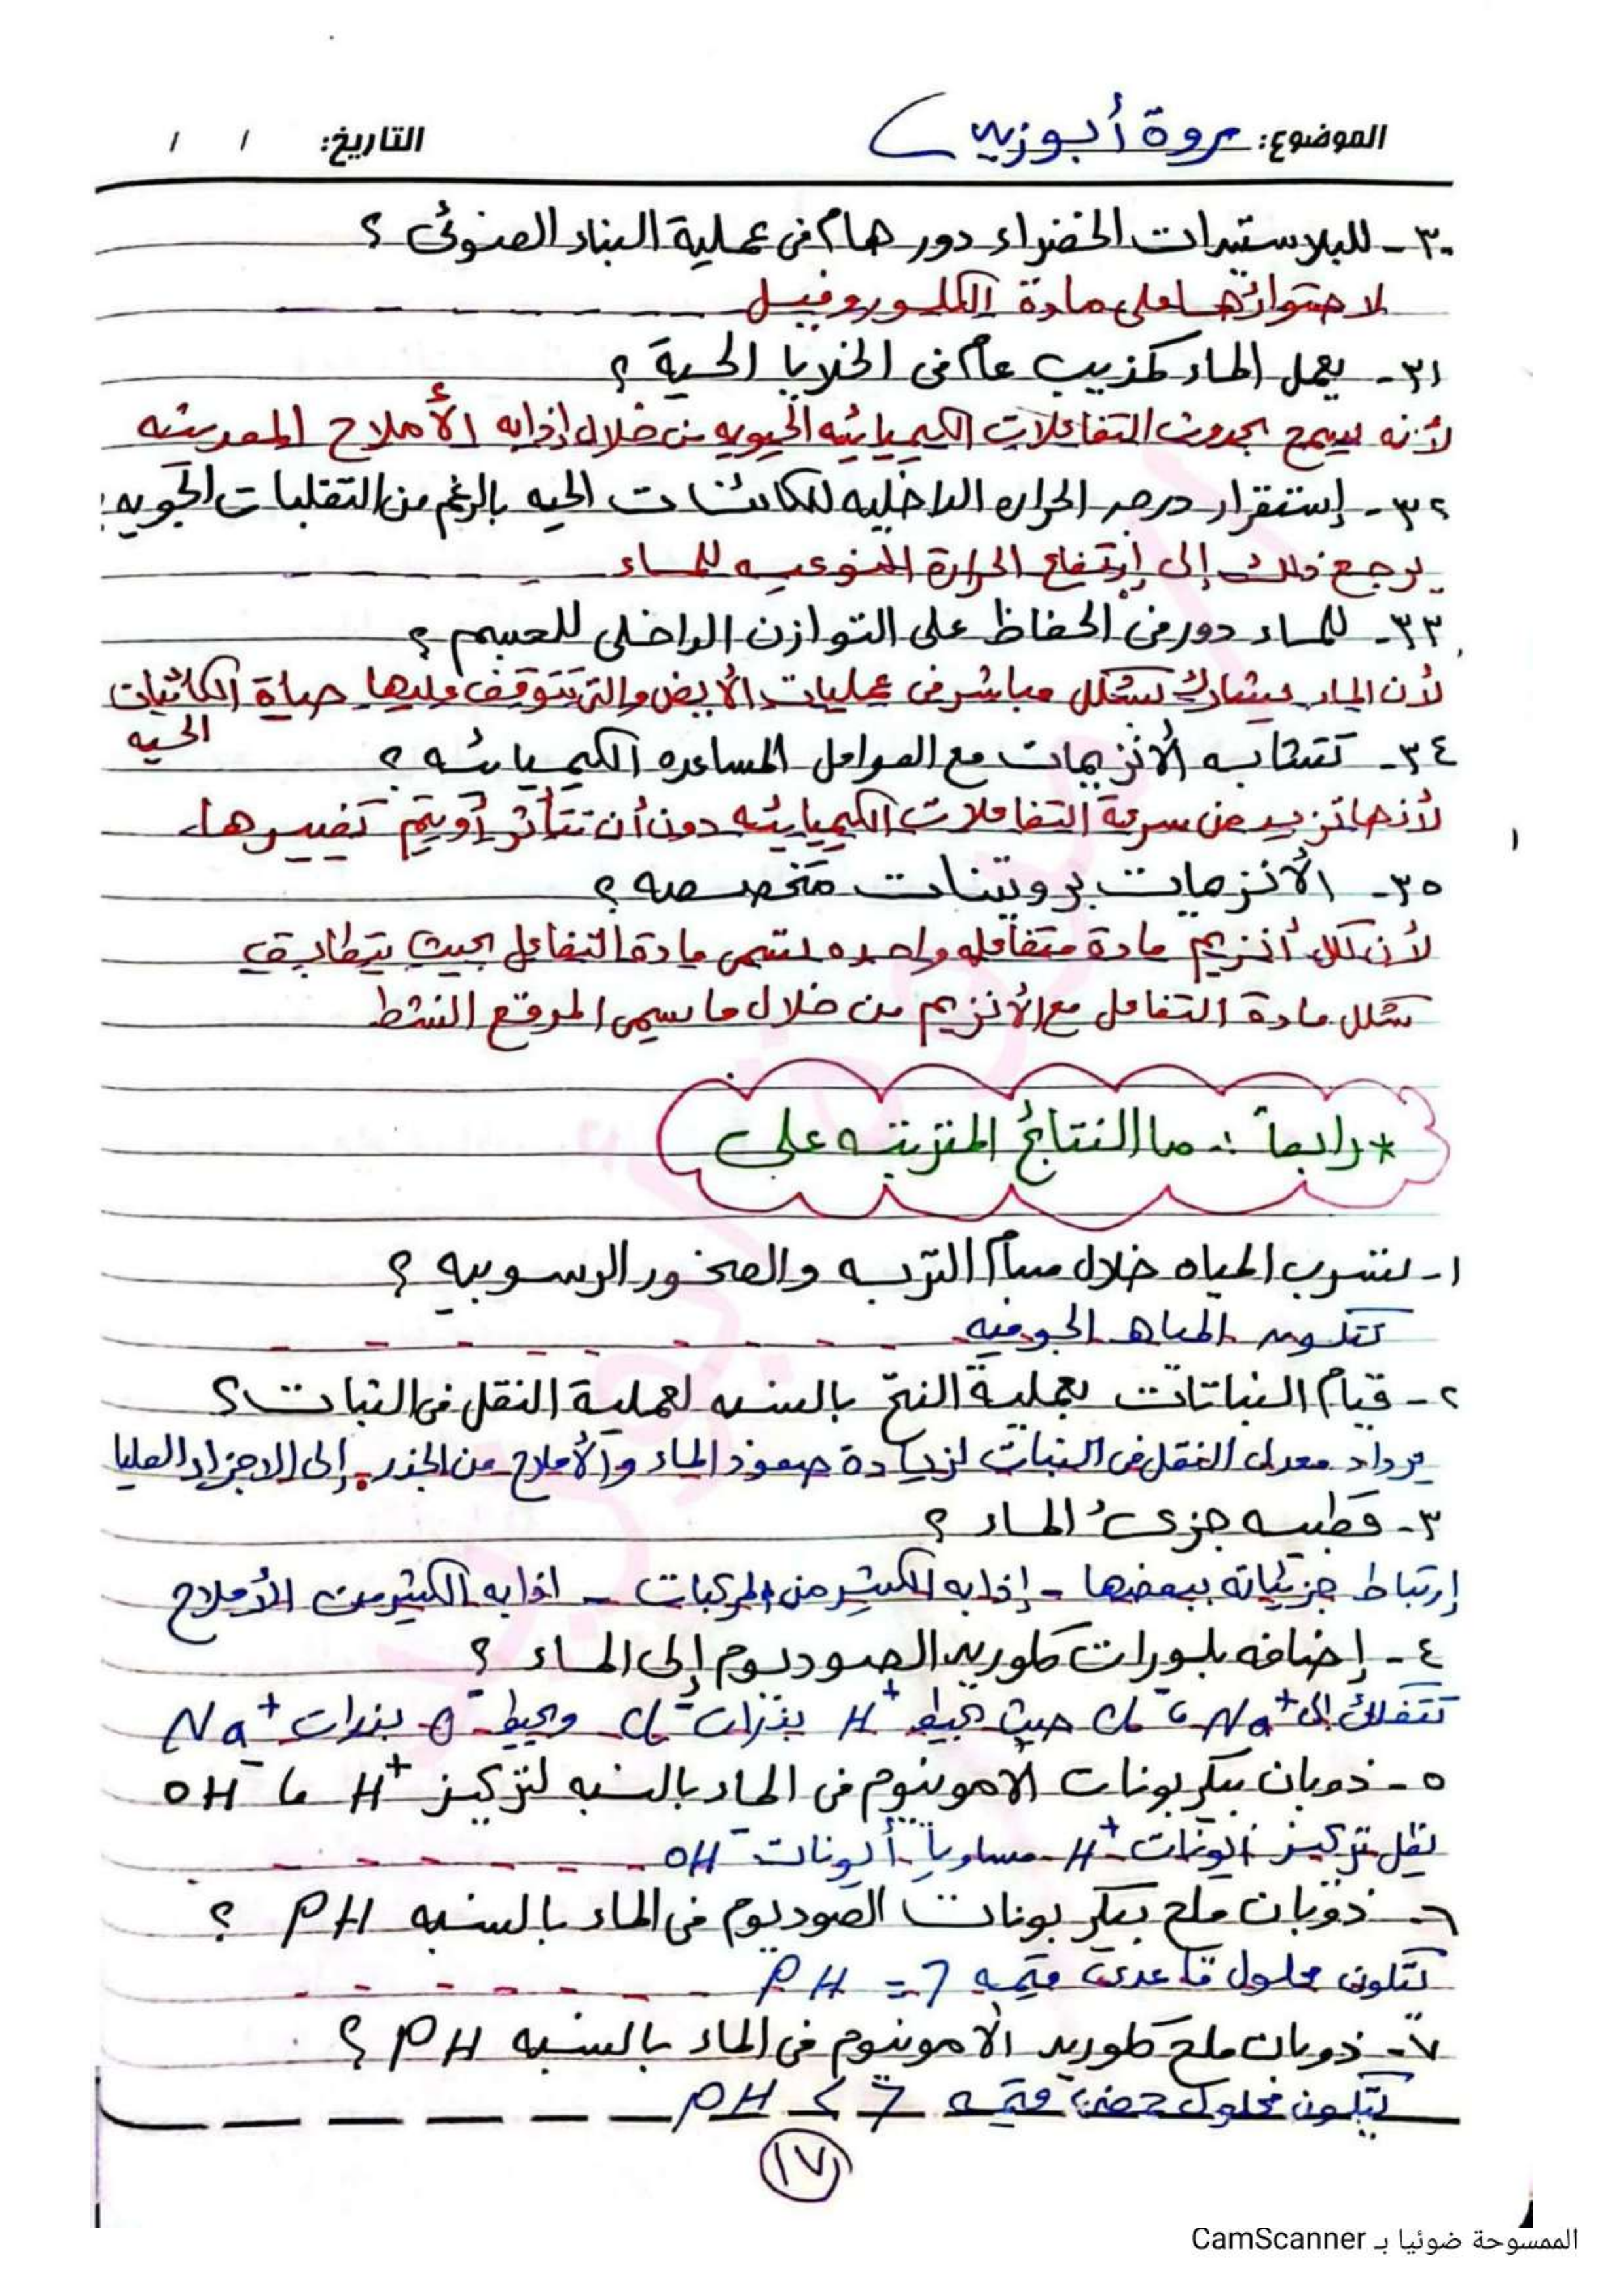 الموضوع: مروة أبوزيد التاريخ: / /
٣٠- للبلاستيدات الخضراء دور هام فى عملية البناء الضوئى ؟
لاحتوائها على مادة الكلوروفيل
٣١- يعمل الماء كمذيب عام فى الخلايا الحية ؟
لأنه يسمح بحدوث التفاعلات الكيميائيه الحيويه من خلال إذابه الأملاح المعدينه
٣٢- إستقرار درجه الحراره الداخليه للكائنات الحيه بالرغم من التقلبات الجويه:
يرجع ذلك إلى إرتفاع الحرارة النوعيه للماء
٣٣- للماء دور فى الحفاظ على التوازن الداخلى للجسم ؟
لأن الماء يشارك بشكل مباشر فى عمليات الأيض والتى تتوقف عليها حياة الكائنات
الحيه
٣٤- تتشابه الأنزيمات مع العوامل المساعده الكيميائيه ؟
لأنها تزيد من سرعة التفاعلات الكيميائيه دون أن تتأثر أو يتم تغييرها
٣٥- الأنزيمات بروتينات متخصصه ؟
لأن لكل أنزيم مادة متفاعله واحده تسمى مادة التفاعل بحيث يتطابق
شكل مادة التفاعل مع الأنزيم من خلال ما يسمى الموقع النشط
* رابعاً :- ما النتائج المترتبه على
١- تسرب المياه خلال مسام التربه والصخور الرسوبيه ؟
تتكون المياه الجوفيه
٢- قيام النباتات بعملية النتح بالنسبه لعملية النقل فى النبات ؟
يزداد معدل النقل فى النبات لزيادة صعود الماء والأملاح من الجذر إلى الاجزاء العليا
٣- قطبيه جزئ الماء ؟
إرتباط جزيئاته ببعضها - إذابه الكثير من المركبات - اذابه الكثير من الأملاح
٤- إضافه بلورات كلوريد الصوديوم إلى الماء ؟
تتفكك إلى Na⁺ ، Cl⁻ حيث تحيط H⁺ بذرات Cl⁻ ويحيط O⁻ بذرات Na⁺
٥- ذوبان بيكربونات الأمونيوم فى الماء بالنسبه لتركيز H⁺ ، OH⁻
يظل تركيز أيونات H⁺ مساوياً أيونات OH⁻
٦- ذوبان ملح بيكربونات الصوديوم فى الماء بالنسبه PH ؟
تتكون محلول قاعدى قيمه PH = 7
٧- ذوبان ملح كلوريد الأمونيوم فى الماء بالنسبه PH ؟
يتكون محلول حمضى قيمه PH < 7
١٧
الممسوحة ضوئيا بـ CamScanner